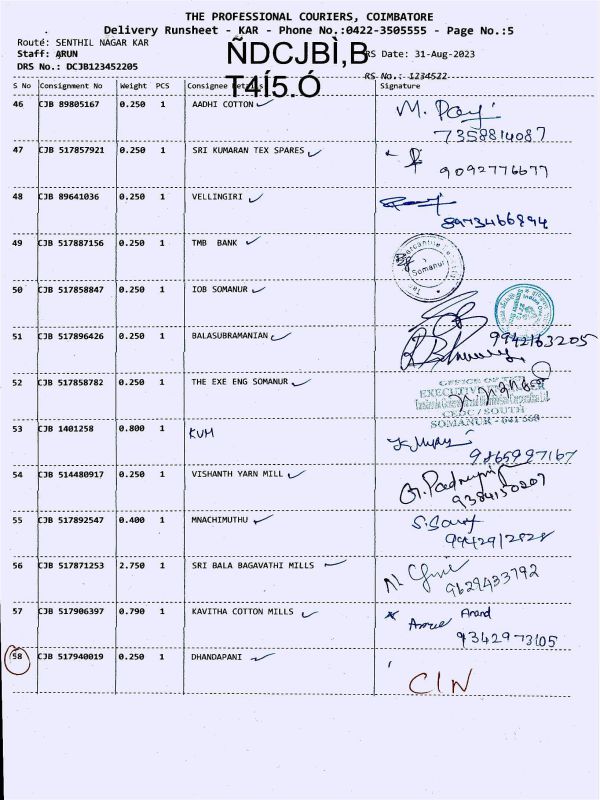 THE PROFESSIONAL COURIERS, COIMBATORE
Delivery Runsheet - KAR - Phone No.:0422-3505555 - Page No.:5
Route: SENTHIL NAGAR KAR
Staff: ARUN
ÑDCJBÌ,B
RS Date: 31-Aug-2023
DRS No.: DCJB123452205
T4Í5.Ó
RS No.: 1234522
S No Consignment No Weight PCS Consignee Details Signature
46 CJB 89805167 0.250 1 AADHI COTTON
7358814087
47 CJB 517857921 0.250 1 SRI KUMARAN TEX SPARES
9092776677
48 CJB 89641036 0.250 1 VELLINGIRI
8973466894
49 CJB 517887156 0.250 1 TMB BANK
Somanur
50 CJB 517858847 0.250 1 IOB SOMANUR
51 CJB 517896426 0.250 1 BALASUBRAMANIAN
9942163205
52 CJB 517858782 0.250 1 THE EXE ENG SOMANUR
OFFICE OF THE
EXECUTIVE
CEDC / SOUTH
SOMANUR - 641 668
53 CJB 1401258 0.800 1 KUM
9865997167
54 CJB 514480917 0.250 1 VISHANTH YARN MILL
9384150207
55 CJB 517892547 0.400 1 MNACHIMUTHU
9942912828
56 CJB 517871253 2.750 1 SRI BALA BAGAVATHI MILLS
9629433792
57 CJB 517906397 0.790 1 KAVITHA COTTON MILLS
Anand
9342973105
58 CJB 517940019 0.250 1 DHANDAPANI
CIN